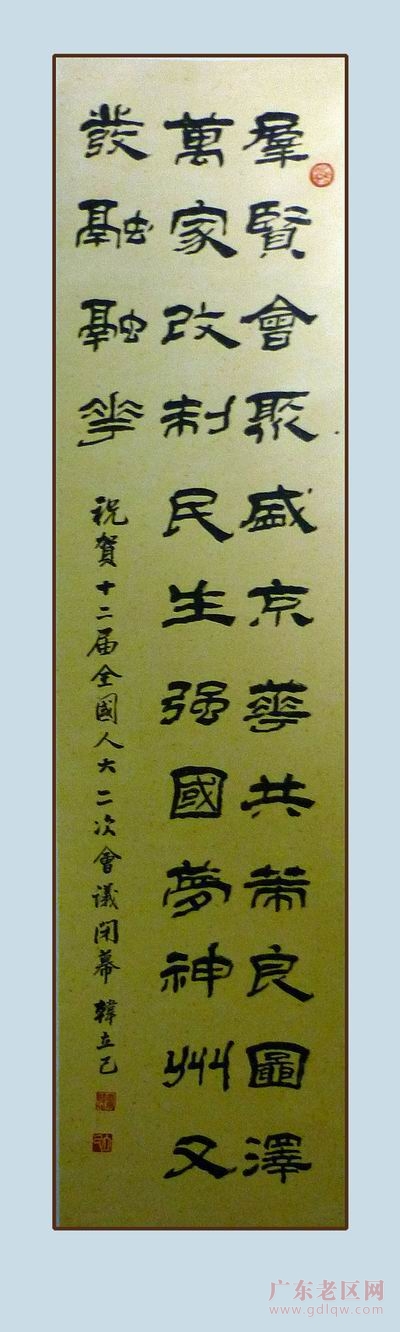 羣賢會聚盛京華共策良圖澤
萬家改制民生强國夢神州又
發融融華
祝賀十二届全國人大二次會議閉幕 韓立己
广东老区网
www.gdlqw.com